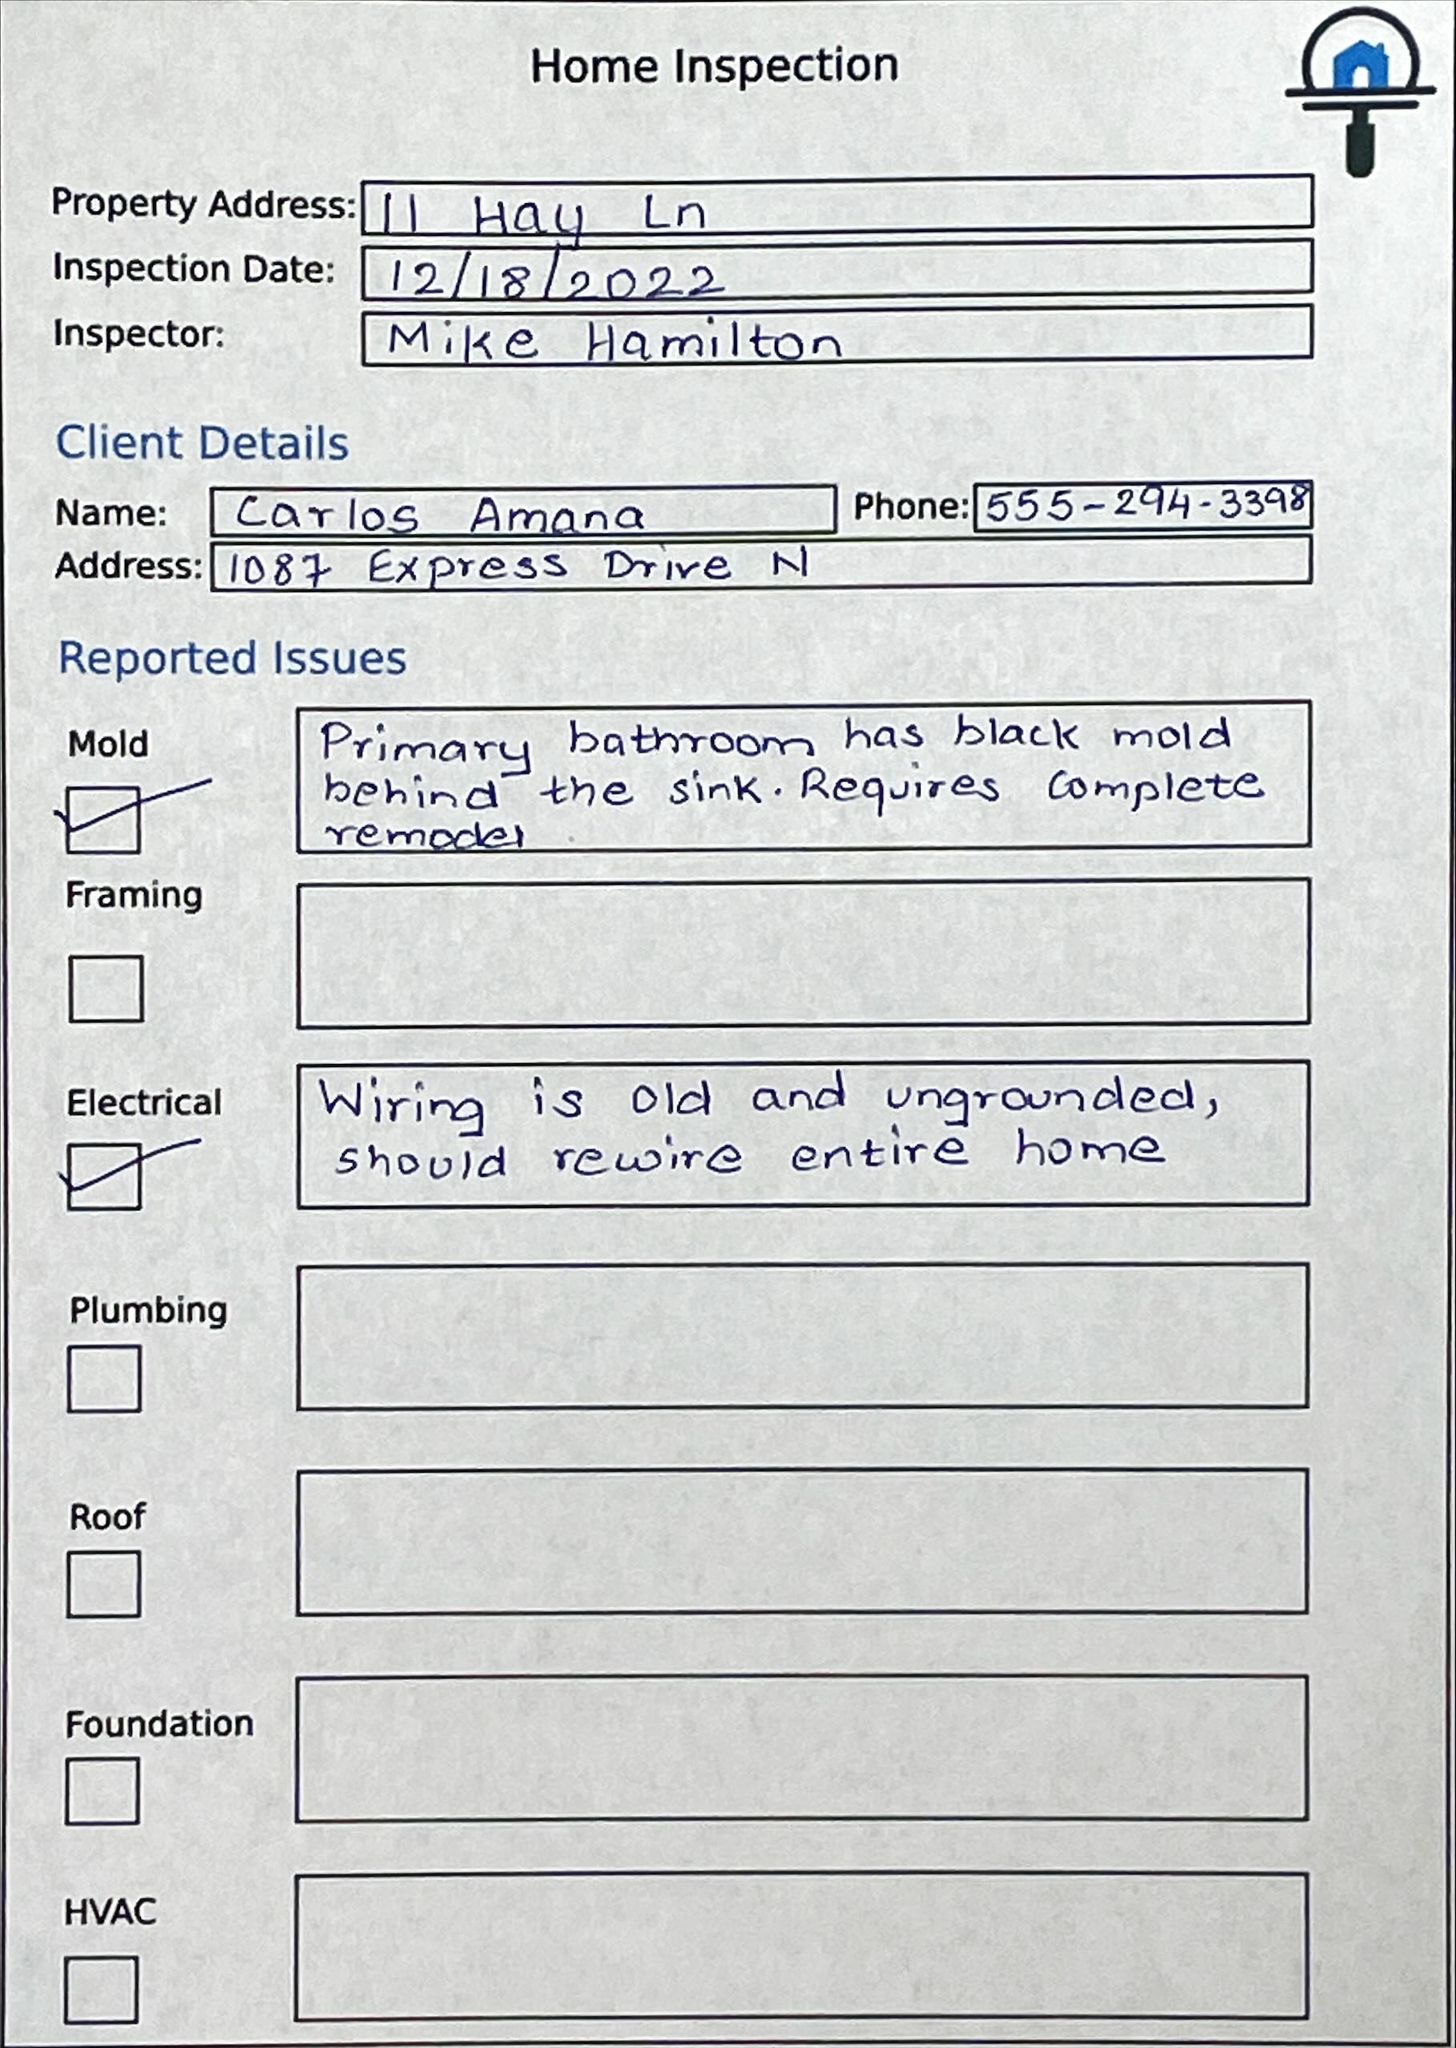 Home Inspection
Property Address: 11 Hay Ln
Inspection Date: 12/18/2022
Inspector: Mike Hamilton
Client Details
Name: Carlos Amana Phone: 555-294-3398
Address: 1087 Express Drive N
Reported Issues
Mold
Primary bathroom has black mold
behind the sink. Requires complete
remodel
Framing
Electrical
Wiring is old and ungrounded,
should rewire entire home
Plumbing
Roof
Foundation
HVAC